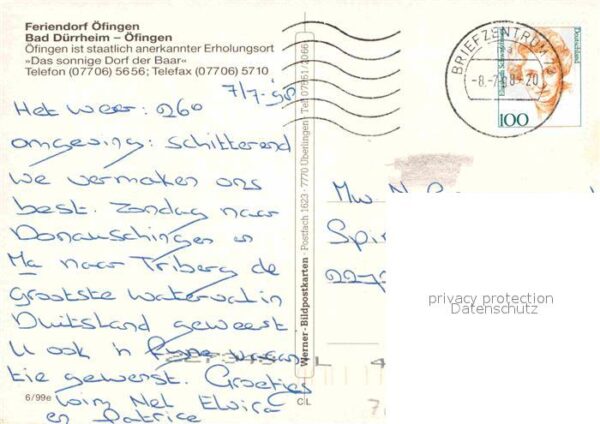 Feriendorf Öfingen
Bad Dürrheim – Öfingen
Öfingen ist staatlich anerkannter Erholungsort
»Das sonnige Dorf der Baar«
Telefon (07706) 5656; Telefax (07706) 5710
7/7-'98
Het weer: 26°
omgeving: schitterend
we vermaken ons
best. Zondag naar
Donauschingen en
Ma naar Triberg de
grootste waterval in
Duitsland geweest.
U ook 'n fijne vakan
tie gewenst. Groetjes
Wim Nel Elvira
en Patrice
6/99e
CL
Werner-Bildpostkarten · Postfach 1623 · 7770 Überlingen · Tel. 07551/2066
BRIEFZENTRUM 78
-8.-7.98-20
Deutschland
100
Mw N
Spi
privacy protection
Datenschutz